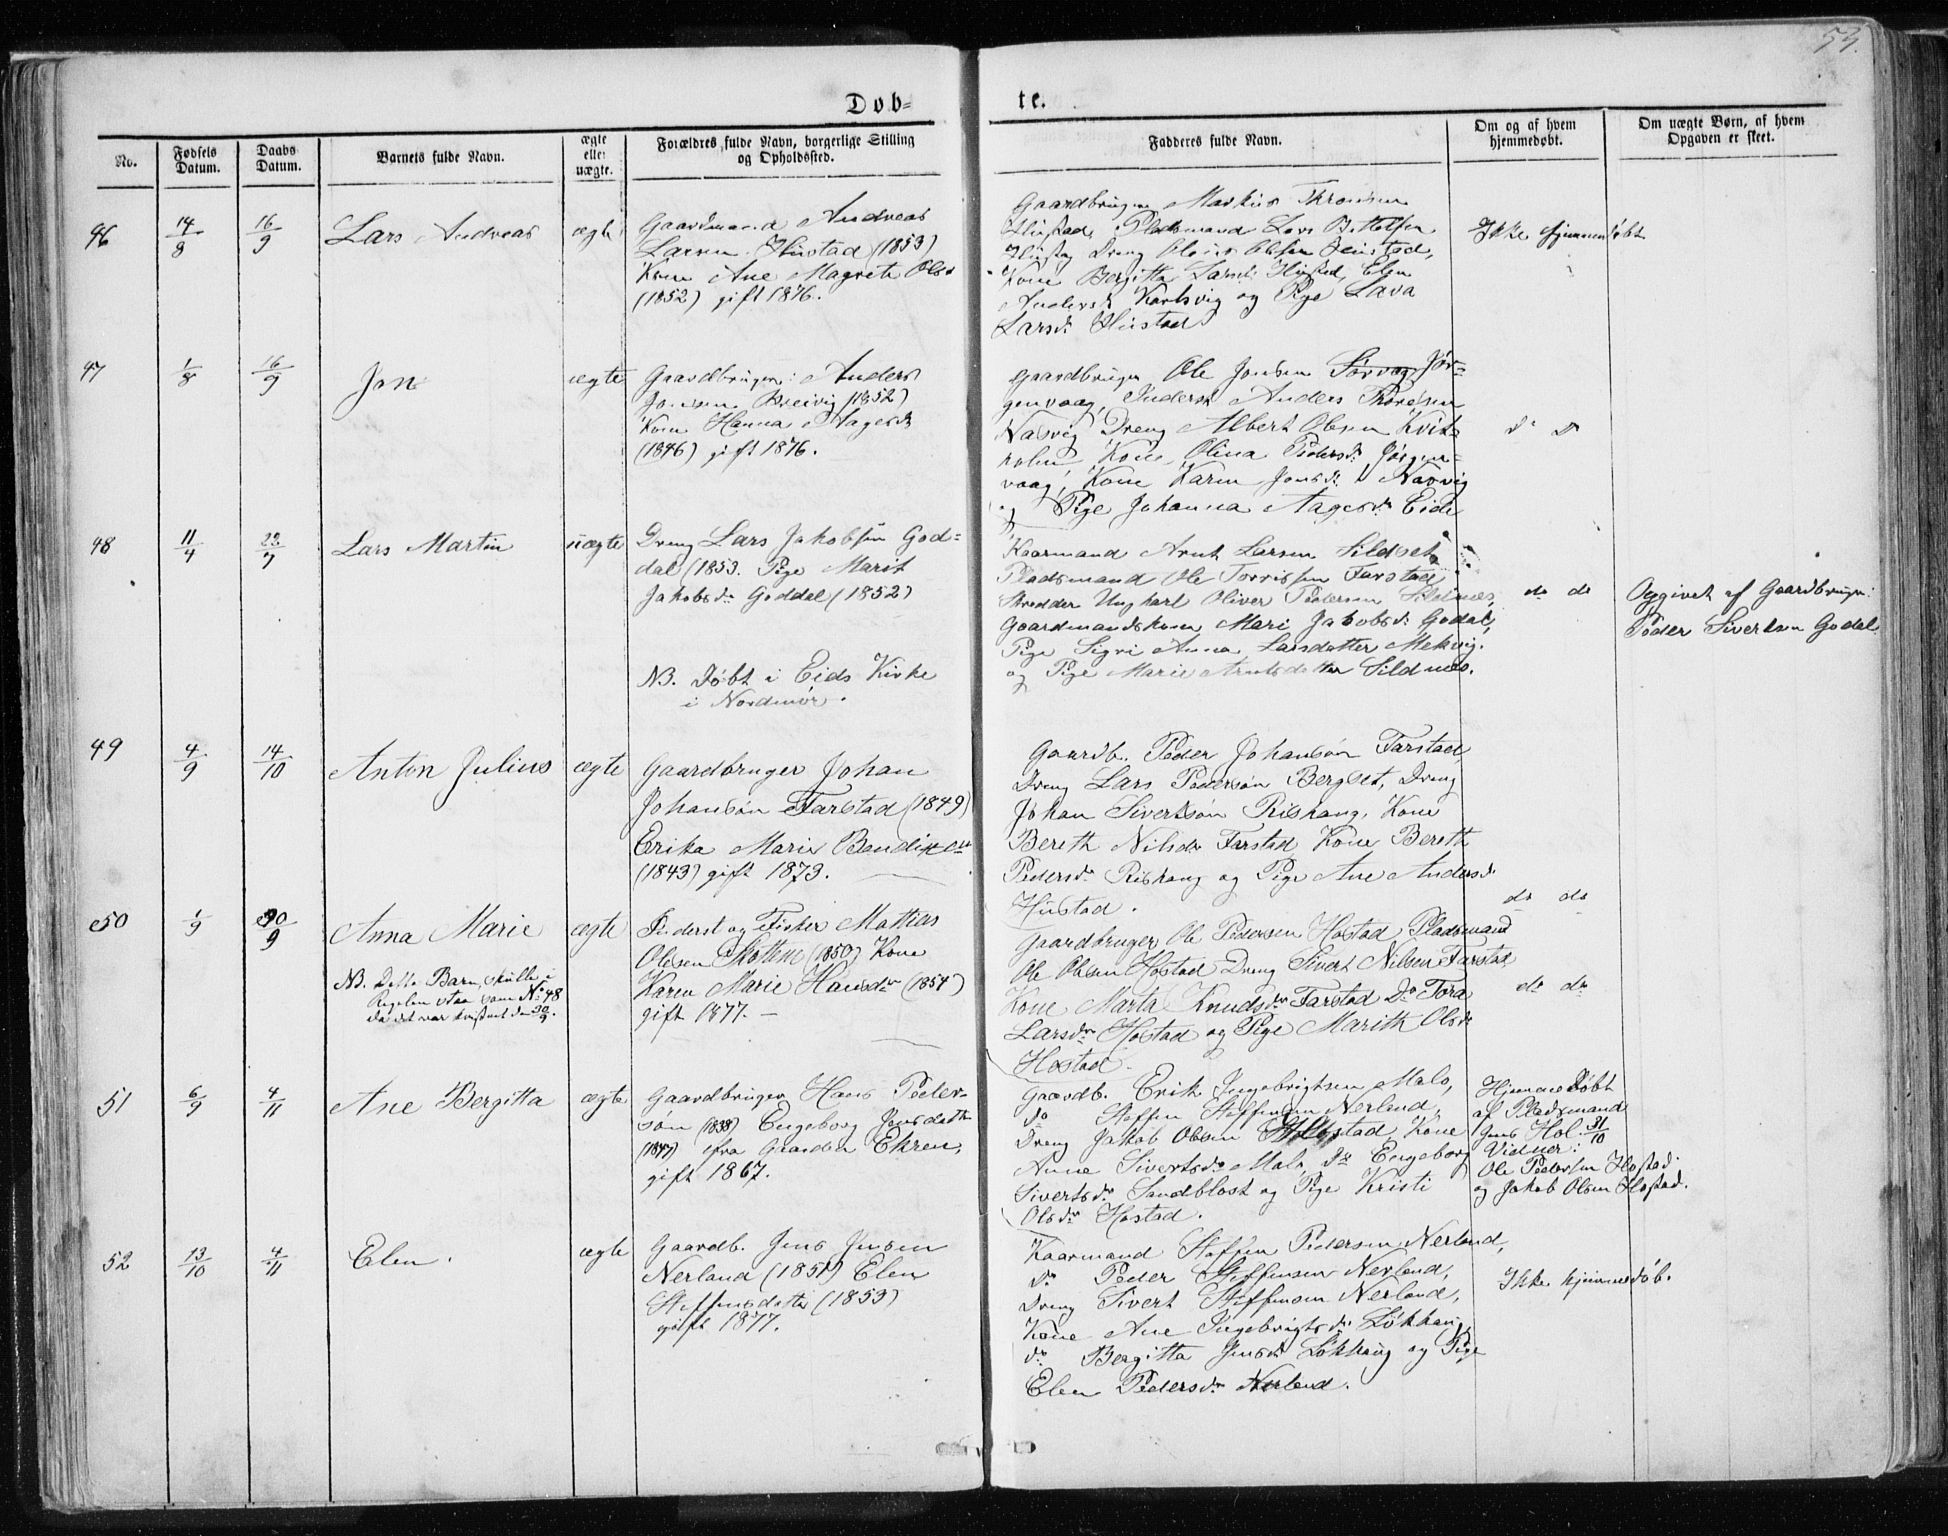 53.
Døb=
te.
No.
Fødsels Datum.
Daabs Datum.
Barnets fulde Navn.
ægte eller uægte.
Forældres fulde Navn, borgerlige Stilling og Opholdssted.
Fadderes fulde Navn.
Om og af hvem hjemmedøbt.
Om uægte Børn, af hvem Opgaven er skeet.
46
14/8
16/9
Lars Andreas
ægte
Gaardmand Andreas
Larsen Hustad (1853)
Kone Ane Magrete Olsd
(1852) gift 1876.
Gaardbruger Markus Thronsen
Hustad, Pladsmand Lars
Hustad Dreng Olsen
Kone Bergitta Larsd. Hustad, Elen
Andersd. Karlsvig og Pige Lava
Larsdr Hustad
Ikke hjemmedøbt
47
1/8
16/9
Jon
ægte
Gaardbruger: Anders
Jonsen Breivig (1852)
Kone Hanna Agesdr
(1846) gift 1876.
Gaardbruger Ole Jonsen Sørvag Jør=
genvaag, Inderst Anders Thoresen
Nasvig Dreng Albert Olsen Kvit-
holm Kone Olina Pedersdr Jørgen-
vaag, Kone Karen Jonsdr Nasvig
og Pige Johanna Aagesdr Eide
do do
48
11/4
22/7
Lars Martin
uægte
Dreng Lars Jakobsen God=
dal (1853. Pige Marit
Jakobsdr Goddal (1852)
NB. Døbt i Eids Kirke
i Nordmør.
Kaarmand Arnt Larsen Sildset
Pladsmand Ole Torrissen Farstad
Skredder Ungkarl Oliver Pedersen Sildnes,
Gaardmandskone Mari Jakobsdr Godal,
Pige Sigri Anna Larsdatter Mekvig.
og Pige Marie Arntsdatter Sildnes.
do do
Opgivet af Gaardbruger:
Peder Sivertsen Godal
49
4/9
14/10
Anton Julius
ægte
Gaardbruger Johan
Johansøn Farstad (1849)
Erika Marie Bendixdr
(1843) gift 1873.
Gaardb. Peder Johansøn Farstad,
Dreng Lars Pedersøn Bergset, Dreng
Johan Sivertsøn Rishaug, Kone
Bereth Nilsdr Farstad Kone Bereth
Pedersdr Rishaug og Pige Ane Andersdr
Hustad.
do do
50
1/9
30/9
Anna Marie
NB. Dette Barn skulde i
Regelen staa som No 48
da det var kristnet den 30/9.
ægte
Inderst og Fisker Mathias
Olsen Skotten (1850) Kone
Karen Marie Hansdr (1854)
gift 1877. –
Gaardbruger Ole Pedersen Hostad, Pladsmand
Ole Olsen Hostad Dreng Sivert Nilsen Farstad
Kone Marta Knudsdr Farstad Do Tora
Larsdr Hostad og Pige Marith Olsdr
Hostad.
do do
51
6/9
4/11
Ane Bergitta
ægte
Gaardbruger Hans Peder-
søn (1838) Engeborg Jensdatter
(1847) fra Gaarden Ekren,
gift 1867.
Gaardb. Erik Ingebrigtsen Malo,
do Steffen Steffensen Nerland,
Dreng Jakob Olsen Hostad, Kone
Anne Sivertsdr Malo, Do Engeborg
Sivertsdr Sandblost og Pige Kristi
Olsdr Hostad.
Hjemmedøbt
af Pladsmand
Jens Hol. 31/10
Vidner:
Ole Pedersen Hostad.
og Jakob Olsen Hostad.
52
13/10
4/11
Elen.
ægte
Gaardb. Jens Jensen
Nerland (1851) Elen
Steffensdatter (1853)
gift 1877.
Kaarmand Steffen Pedersen Nerland,
do Peder Steffensen Nerland,
Dreng Sivert Steffensen Nerland,
Kone Ane Ingebrigtsdr Løkhaug,
do Bergitta Jensdr Løkhaug og Pige
Elen Pedersdr Nerland.
Ikke hjemmedøb.